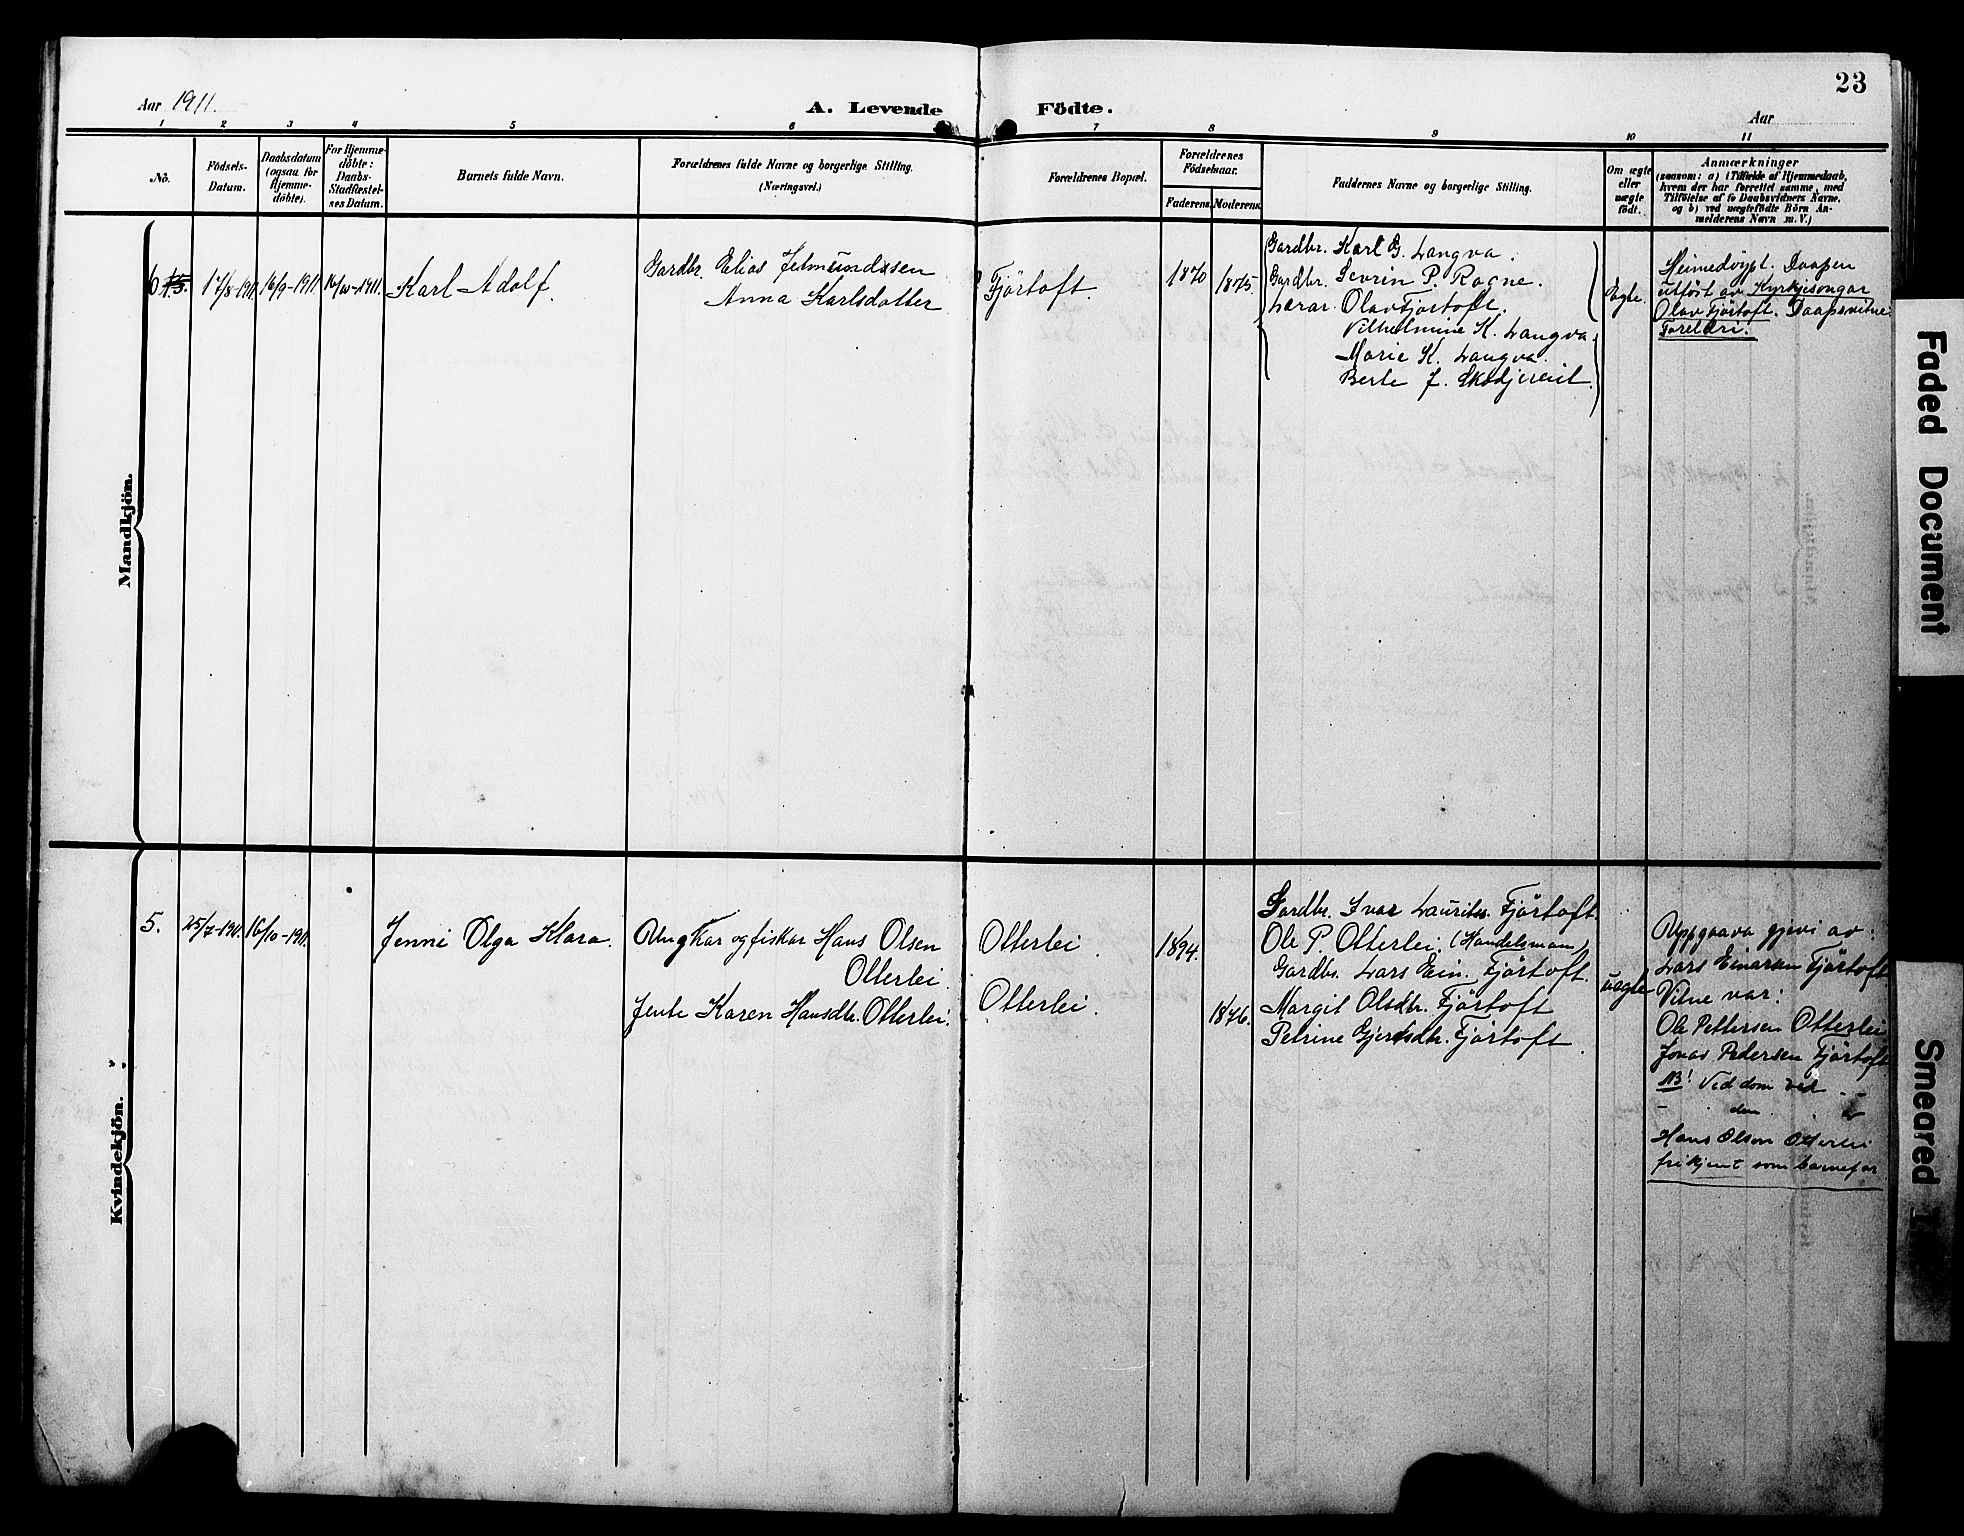 23
Aar 1911.
A. Levende Födte.
Aar
1 2 3 4 5 6 7 8 9 10 11
No.
Födsels-
Datum.
Daabsdatum
(ogsaa for
Hjemme-
döbte).
For Hjemme-
döbte:
Daabs-
Stadfæstel-
ses Datum.
Barnets fulde Navn.
Forældrenes fulde Navne og borgerlige Stilling.
(Næringsvei.)
Forældrenes Bopæl.
Forældrenes
Födselsaar.
Faderens. Moderens.
Faddernes Navne og borgerlige Stilling.
Om ægte
eller
uægte
födt.
Anmærkninger
(saasom: a) i Tilfælde af Hjemmedaab,
hvem der har forrettet samme, med
Tilföielse af to Daabsvidners Navne,
og b) ved uægtefödte Börn An-
melderens Navn m. V.)
Mandkjön.
6.
17/8-1911.
16/9-1911
14/10-1911.
Karl Adolf.
Gardbr. Elias Jetmundssen
Anna Karlsdotter
Fjörtoft.
1870
1875.
Gardbr. Karl G. Langva.
Gardbr. Sevrin P. Rogne.
Lærar. Olav Fjörtoft.
Vilhelmine K. Langva.
Marie K. Langva.
Berte J. Skodjereit.
Ægte.
Heimedöypt. Daapen
utfört av Kyrkjesongar
Olav Fjörtoft. Daapsvitne
Foreldri.
Kvindekjön.
5.
25/7-1911.
16/10-1911.
Jenni Olga Klara.
Ungkar og fiskar Hans Olsen
Otterlei.
Jente Karen Hansdtr. Otterlei.
Otterlei.
Otterlei.
1894.
1876.
Gardbr. Ivar Laurits. Fjörtoft.
Ole P. Otterlei. (Handelsmann)
Gardbr. Lars Ein. Fjörtoft.
Margit Olsdtr. Fjörtoft
Petrine Gjertsdtr. Fjörtoft.
uægte
Uppgaava gjevi av:
Lars Einarsen Fjörtoft
Vitne var:
Ole Pettersen Otterlei
Jonas Pedersen Fjörtoft
NB! Ved dom ved
den
er
Hans Olsen Otterlei
frikjent som barnefar
Faded Document
Smeared